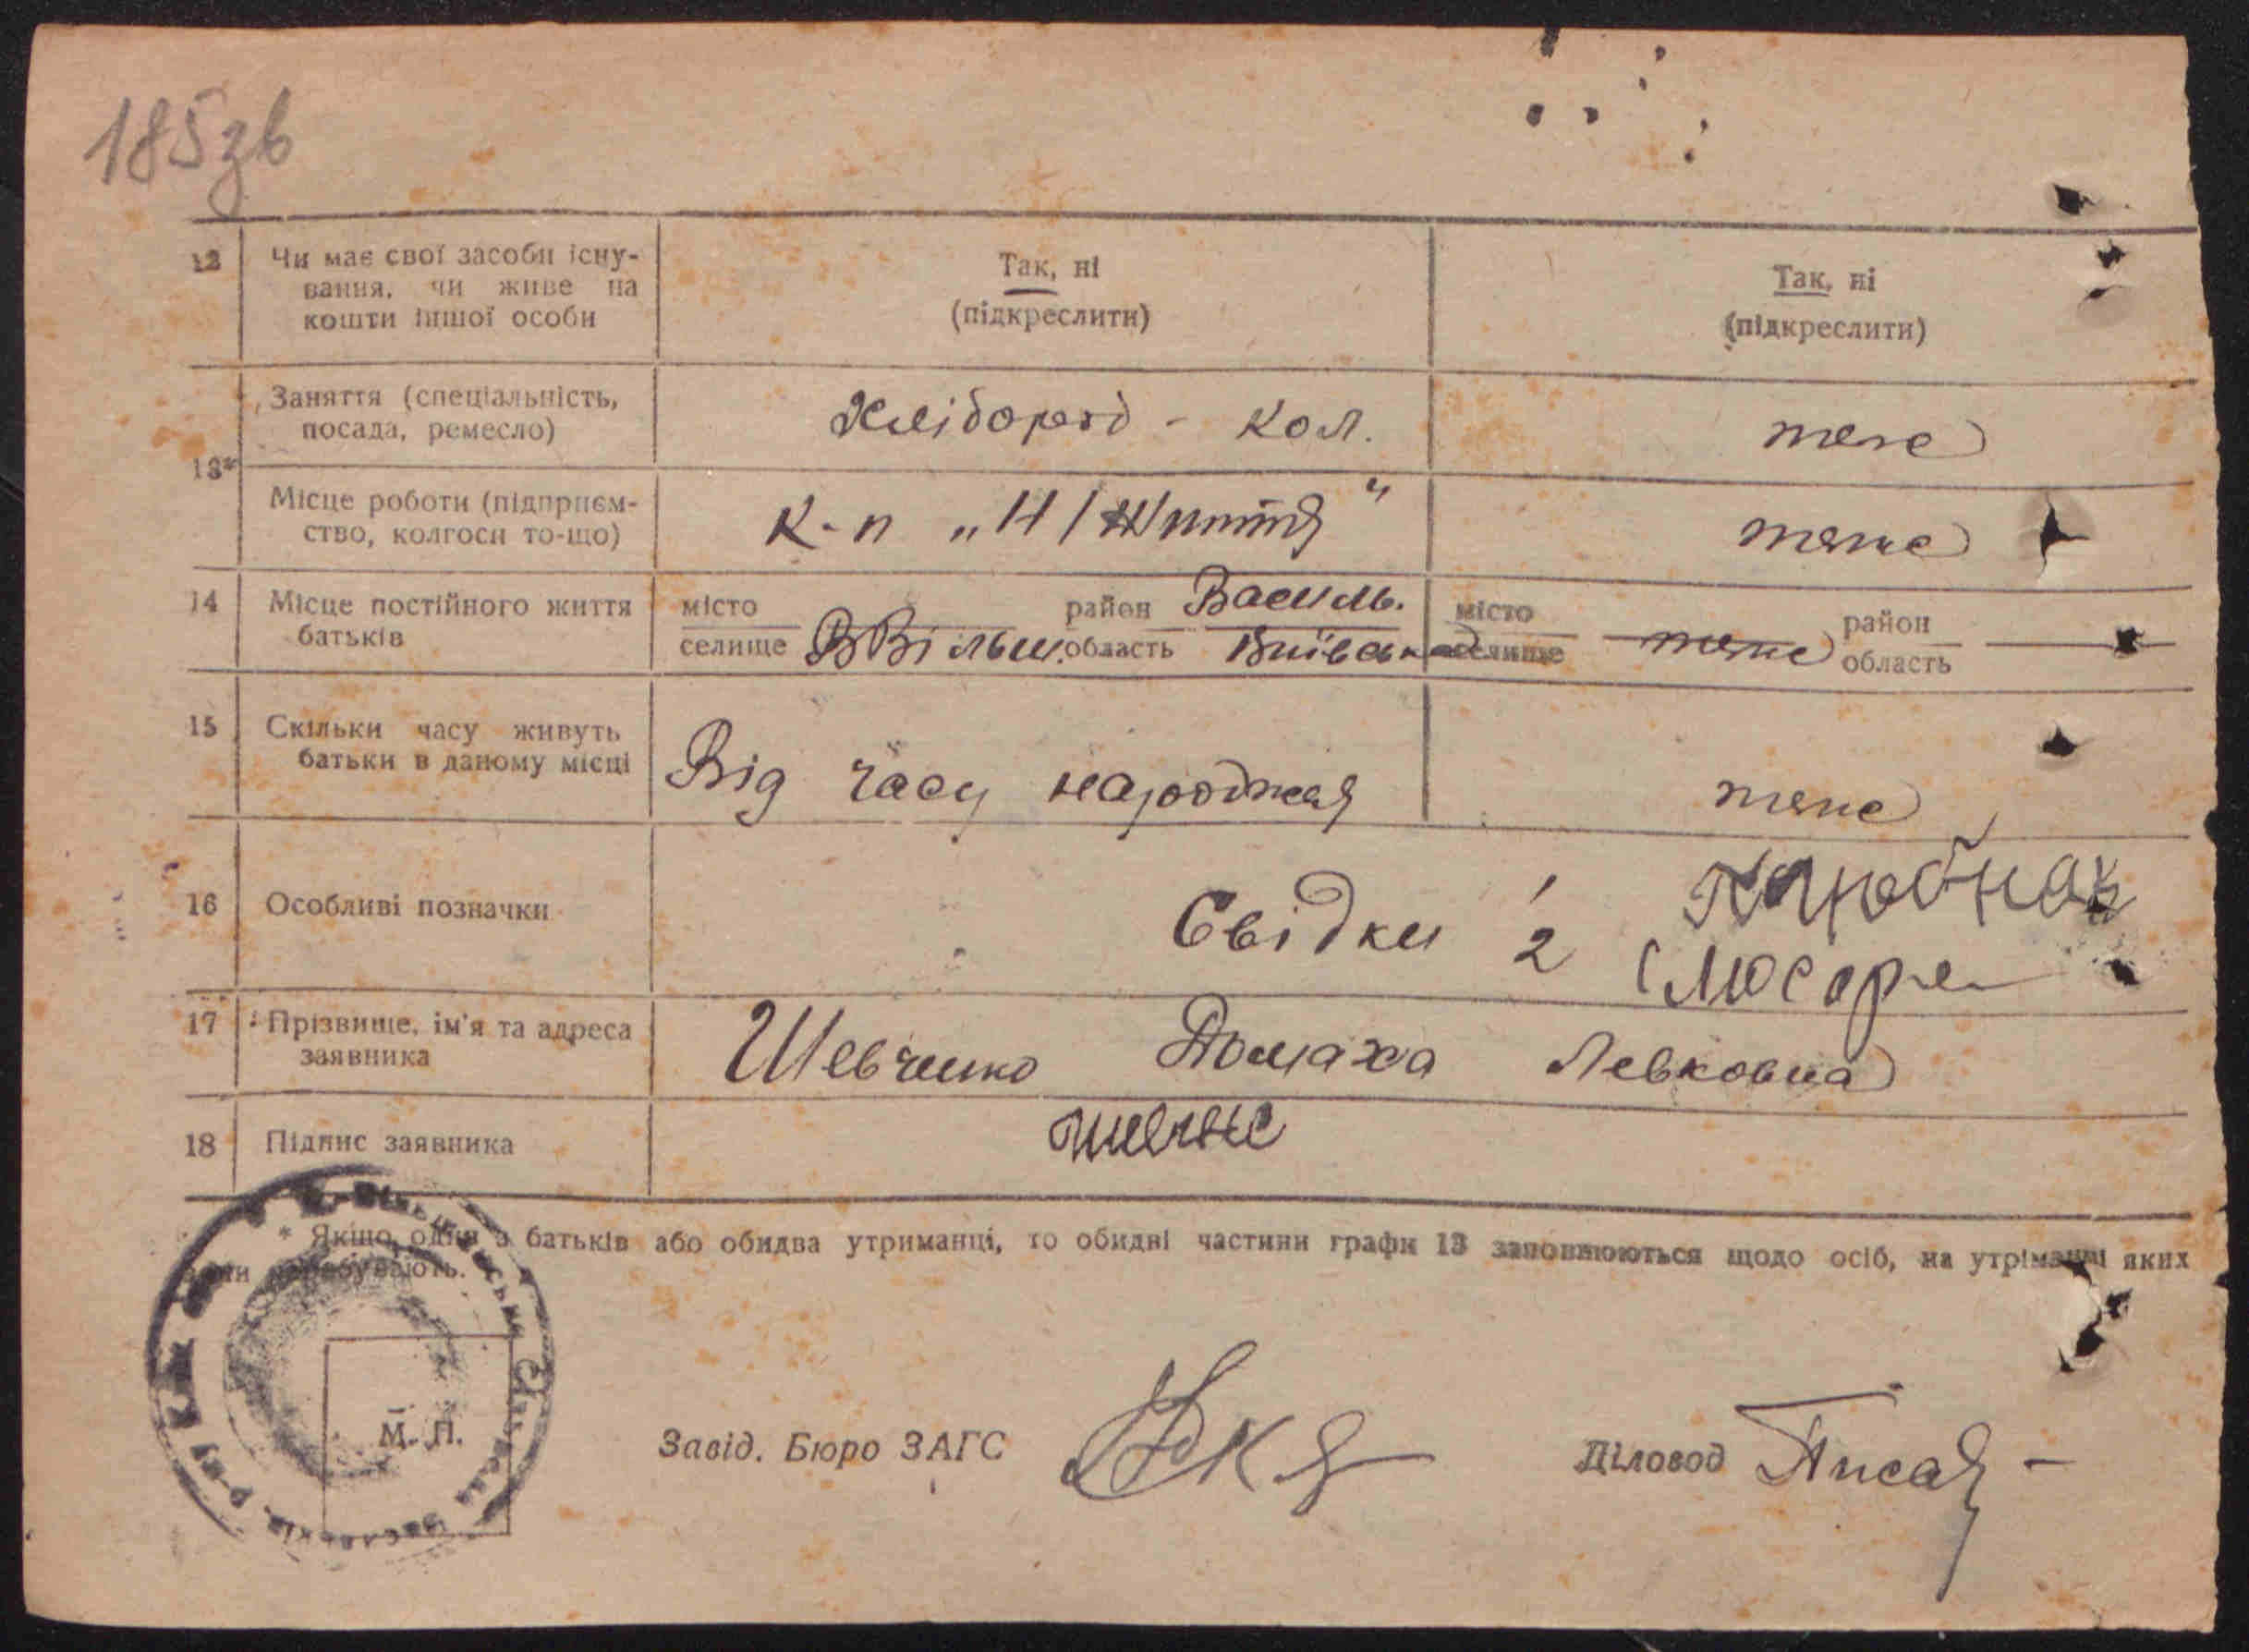 185зв
12 Чи має свої засоби існу-
вання, чи живе на
кошти іншої особи
Так, ні
(підкреслити)
Так, ні
(підкреслити)
13*
Заняття (спеціальність,
посада, ремесло)
Хлібороб - кол.
теж
Місце роботи (підприєм-
ство, колгосп то-що)
К-п „Н/Життя"
теже
14 Місце постійного життя
батьків
місто
селище ВВільш.
район Василь.
область Київська
місто
селище теже
район
область
15 Скільки часу живуть
батьки в даному місці
Від часу народжня
теже
16 Особливі позначки
Свідки 1
2 Слюсаре
17 Прізвище, ім'я та адреса
заявника
Шевченко Домаха Левковна
18 Підпис заявника
* Якщо один з батьків або обидва утриманці, то обидві частини графи 13 заповнюються щодо осіб, на утріманні яких
вони перебувають.
М. П.
Завід. Бюро ЗАГС
Діловод